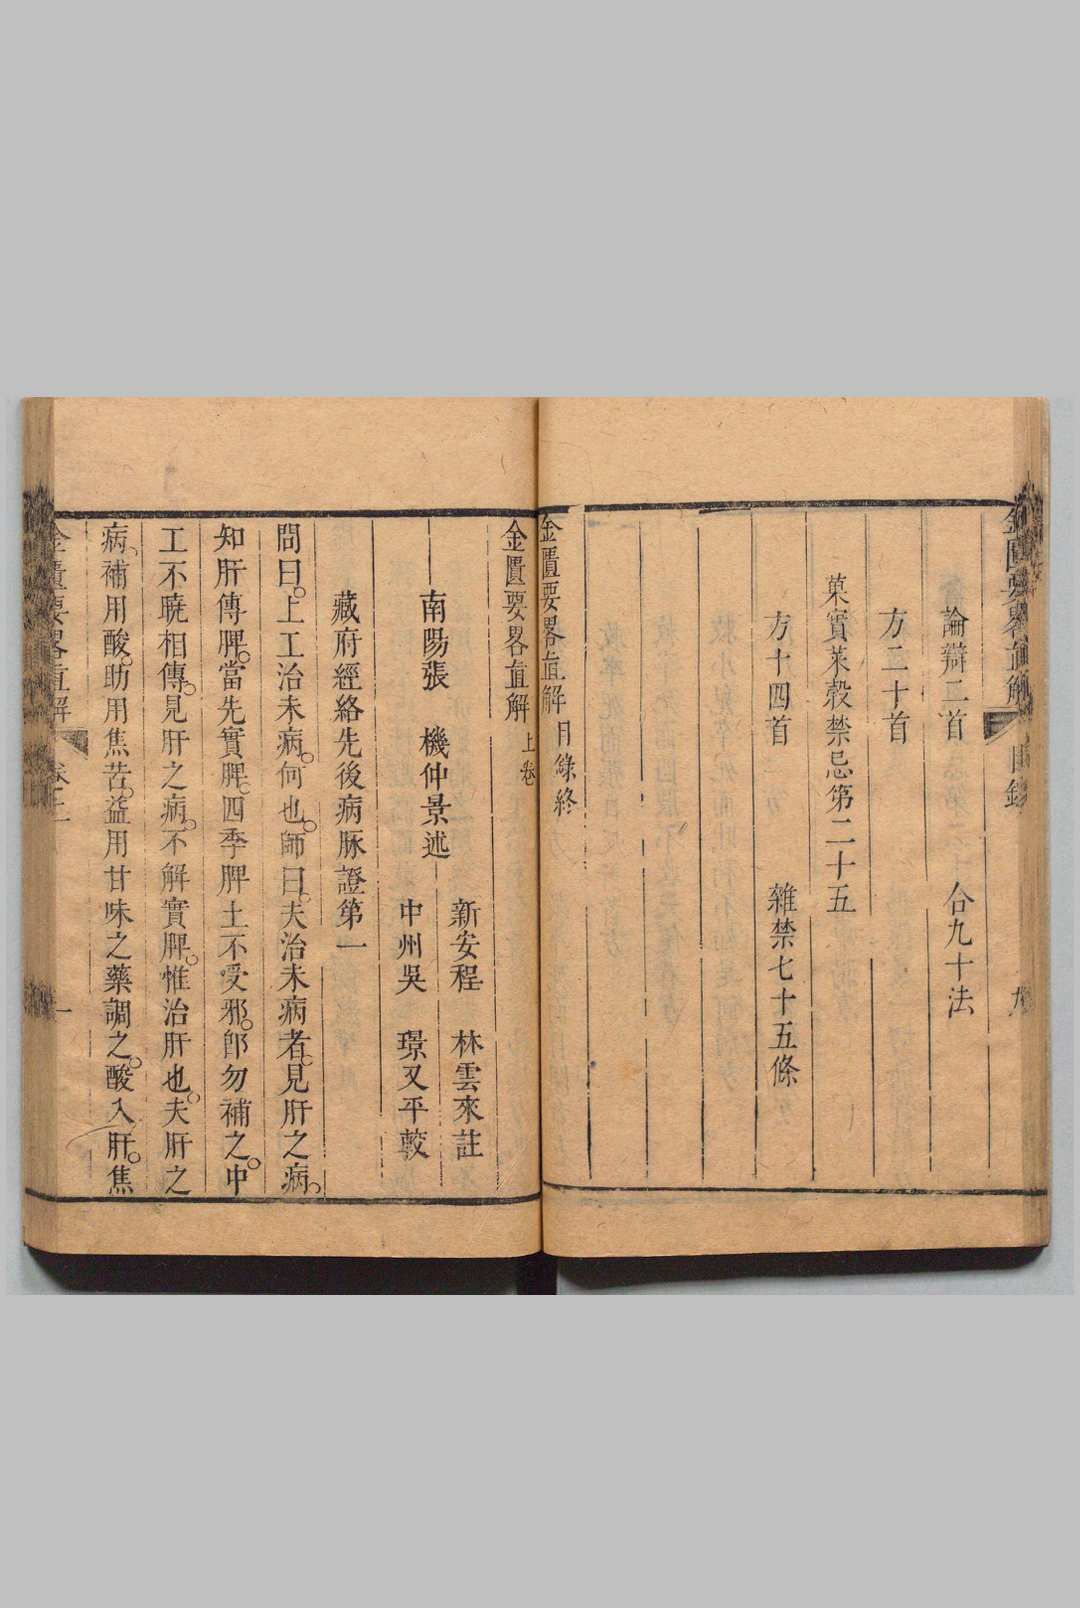 金匱要畧直解 目錄 九
論辯二首 合九十法
方二十首
菓實菜榖禁忌第二十五
方十四首 雜禁七十五條
金匱要畧直解目錄終
金匱要畧直解上卷
南陽張 機仲景述
新安程 林雲來註
中州吳 璟又平較
藏府經絡先後病脉證第一
問曰。上工治未病。何也。師曰。夫治未病者。見肝之病。
知肝傳脾。當先實脾。四季脾土不受邪。卽勿補之。中
工不曉相傳。見肝之病。不解實脾。惟治肝也。夫肝之
病。補用酸。助用焦苦。益用甘味之藥調之。酸入肝。焦
金匱要畧直解 卷上 一